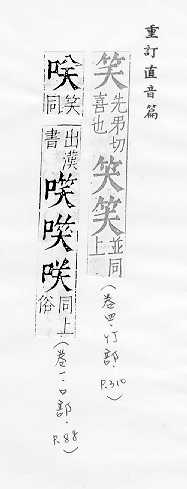 重訂直音篇
笑先弔切喜也笑並同上(卷四·竹部·P.310)
笑同出漢書咲同上俗(卷一·口部·P.88)